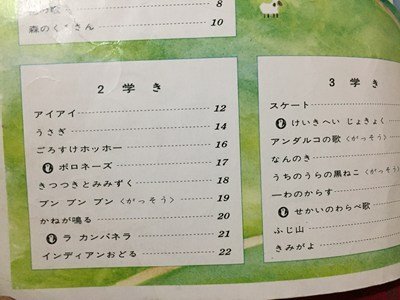 8
森のくまさん 10
2 学き
アイアイ 12
うさぎ 14
ごろすけホッホー 16
ポロネーズ 17
きつつきとみみずく 18
ブン ブン ブン〈がっそう〉 19
かねが鳴る 20
ラ カンパネラ 21
インディアンおどる 22
3 学き
スケート
けいきへい じょきょく
アンダルコの歌〈がっそう〉
なんのき
うちのうらの黒ねこ〈がっそう〉
一わのからす
せかいのわらべ歌
ふじ山
きみがよ